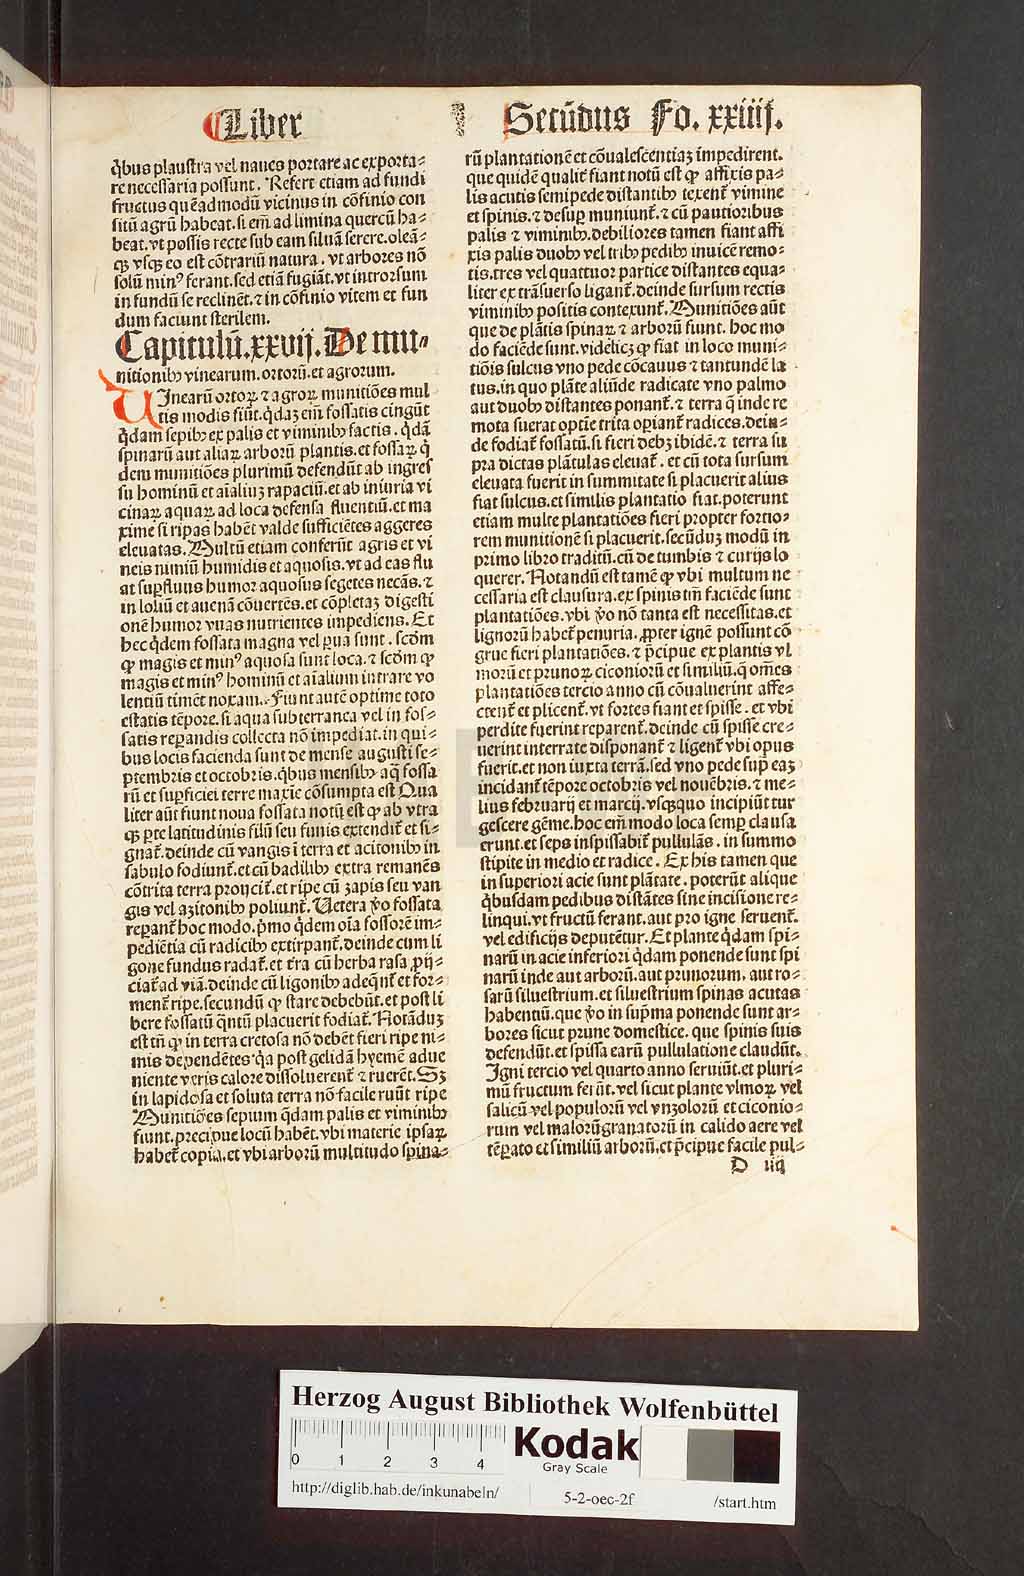 Liber Secūdus Fo. xxiiij.
q̄bus plaustra vel naues portare ac exporta⸗
re necessaria possunt. Refert etiam ad fundi
fructus quēadmodū vicinus in cōfinio con
sitū agrū habeat. si em̄ ad limina quercū ha⸗
beat. vt possis recte sub eam siluā serere. oleā⸗
qꝫ vsqꝫ eo est cōtrariū natura. vt arbores nō
solū minꝰ ferant. sed etiā fugiāt. vt introrsum
in fundū se reclinēt. ⁊ in cōfinio vitem et fun
dum faciunt sterilem.
Capitulū. xxvij. De mu⸗
nitionibꝫ vinearum. ortorū. et agrorum.
UInearū ortoꝝ ⁊ agroꝝ munitiōes mul
tis modis fiūt. q̄daꝫ em̄ fossatis cingūt
q̄dam sepibꝫ ex palis et viminibꝫ factis. q̄dā
spinarū aut aliaꝝ arborū plantis. et fossaꝝ q̄
dem munitiōes plurimū defendūt ab ingres
su hominū et aīaliuꝫ rapaciū. et ab iniuria vi
cinaꝝ aquaꝝ ad loca defensa fluentiū. et ma
xime si ripas habēt valde sufficiētes aggeres
eleuatas. Multū etiam conferūt agris et vi
neis nimiū humidis et aquosis. vt ad eas flu
at supfluus humor aquosus segetes necās. ⁊
in loliū et auenā cōuertēs. et cōpletaꝫ digesti
onē humor vuas nutrientes impediens. Et
hec q̄dem fossata magna vel ꝑua sunt. scdm
ꝙ magis et minꝰ aquosa sunt loca. ⁊ scdm ꝙ
magis et minꝰ hominū et aīalium intrare vo
lentiū timēt noxam. Fiunt autē optime toto
estatis tēpore. si aqua subterranea vel in fos⸗
satis repandis collecta nō impediat. in qui⸗
bus locis facienda sunt de mense augusti se⸗
ptembris et octobris. q̄bus mensibꝫ aq̄ fossa
rū et supficiei terre maxīe cōsumpta est Qua
liter aūt fiunt noua fossata notū est ꝙ ab vtra
qꝫ ꝑte latitudinis filū seu funis extendit̄ et si⸗
gnat̄. deinde cū vangis ī terra et acitonibꝫ in
sabulo fodiunt̄. et cū badilibꝫ extra remanēs
cōtrita terra proijcit̄. et ripe cū zapis seu van
gis vel azitonibꝫ poliunt̄. Uetera v̊o fossata
reꝑant̄ hoc modo. p̄mo q̄dem oīa fossorē im⸗
pediētia cū radicibꝫ extirpant̄. deinde cum li
gone fundus radat̄. et t̄ra cū herba rasa ꝓij⸗
ciat̄ ad viā. deinde cū ligonibꝫ adeq̄nt̄ et for⸗
ment̄ ripe. secundū ꝙ stare debebūt. et post li
bere fossatū q̄ntū placuerit fodiat̄. Notāduꝫ
est tn̄ ꝙ in terra cretosa nō debēt fieri ripe ni⸗
mis dependētes q̄a post gelidā hyemē adue
niente veris calore dissoluerent̄ ⁊ ruerēt. Sꝫ
in lapidosa et soluta terra nō facile ruūt ripe
Munitiōes sepium q̄dam palis et viminibꝫ
fiunt. precipue locū habēt. vbi materie ipsaꝝ
habet̄ copia. et vbi arborū multitudo spina⸗
rū plantationē et cōualescentiaꝫ impedirent.
que quidē qualit̄ fiant notū est ꝙ affixis pa⸗
lis acutis semipede distantibꝫ texent̄ vimine
et spinis. ⁊ desup muniunt̄. ⁊ cū pautioribus
palis ⁊ viminibꝫ. debiliores tamen fiant affi
xis palis duobꝫ vel tribꝫ pedibꝫ inuicē remo⸗
tis. tres vel quattuor partice distantes equa⸗
liter ex trāsuerso ligant̄. deinde sursum rectis
viminibꝫ positis contexunt̄. Munitiōes aūt
que de plātis spinaꝝ ⁊ arborū fiunt. hoc mo
do faciēde sunt. videlicꝫ ꝙ fiat in loco muni⸗
tiōis sulcus vno pede cōcauus ⁊ tantundē la
tus. in quo plāte aliūde radicate vno palmo
aut duobꝫ distantes ponant̄. ⁊ terra q̄ inde re
mota fuerat optie trita opiant̄ radices. dein⸗
de fodiat̄ fossatū. si fieri debꝫ ibidē. ⁊ terra su
pra dictas plātulas eleuat̄. et cū tota sursum
eleuata fuerit in summitate si placuerit alius
fiat sulcus. et similis plantatio fiat. poterunt
etiam multe plantatiōes fieri propter fortio⸗
rem munitionē si placuerit. secūduꝫ modū in
primo libro traditū. cū de tumbis ⁊ curijs lo
querer. Notandū est tamē ꝙ vbi multum ne
cessaria est clausura. ex spinis tm̄ faciēde sunt
plantatiōes. vbi v̊o nō tanta est necessitas. et
lignorū habet̄ penuria. ꝓpter ignē possunt cō
grue fieri plantatiōes. ⁊ p̄cipue ex plantis vl
morū et prunoꝝ ciconiorū et similiū. q̄ om̄es
plantatiōes tercio anno cū cōualuerint affe⸗
ctent̄ et plicent̄. vt fortes fiant et spisse. et vbi
perdite fuerint reparent̄. deinde cū spisse cre⸗
uerint interrate disponant̄ ⁊ ligent̄ vbi opus
fuerit. et non iuxta terrā. sed vno pede sup eaꝫ
incidant̄ tēpore octobris vel nouēbris. ⁊ me⸗
lius februarij et marcij. vsqꝫquo incipiūt tur
gescere gēme. hoc em̄ modo loca semꝑ clausa
erunt. et seps inspissabit̄ pullulās. in summo
stipite in medio et radice. Ex his tamen que
in superiori acie sunt plātate. poterūt alique
q̄busdam pedibus distātes sine incisione re⸗
linqui. vt fructū ferant. aut pro igne seruent̄.
vel edificijs deputētur. Et plante q̄dam spi⸗
narū in acie inferiori q̄dam ponende sunt spi
narū inde aut arborū. aut prunorum. aut ro⸗
sarū siluestrium. et siluestrium spinas acutas
habentiū. que v̊o in sup̄ma ponende sunt ar⸗
bores sicut prune domestice. que spinis suis
defendūt. et spissa earū pullulatione claudūt.
Igni tercio vel quarto anno seruiūt. et pluri⸗
mū fructum ferūt. vel sicut plante vlmoꝝ vel
salicū vel populorū vel vnzolorū et ciconio⸗
rum vel malorū granatorū in calido aere vel
tēꝑato et similiū arborū. et p̄cipue facile pul⸗
D iiij
Herzog August Bibliothek Wolfenbüttel
0 1 2 3 4
Kodak
Gray Scale
http://diglib.hab.de/inkunabeln/ 5-2-oec-2f /start.htm